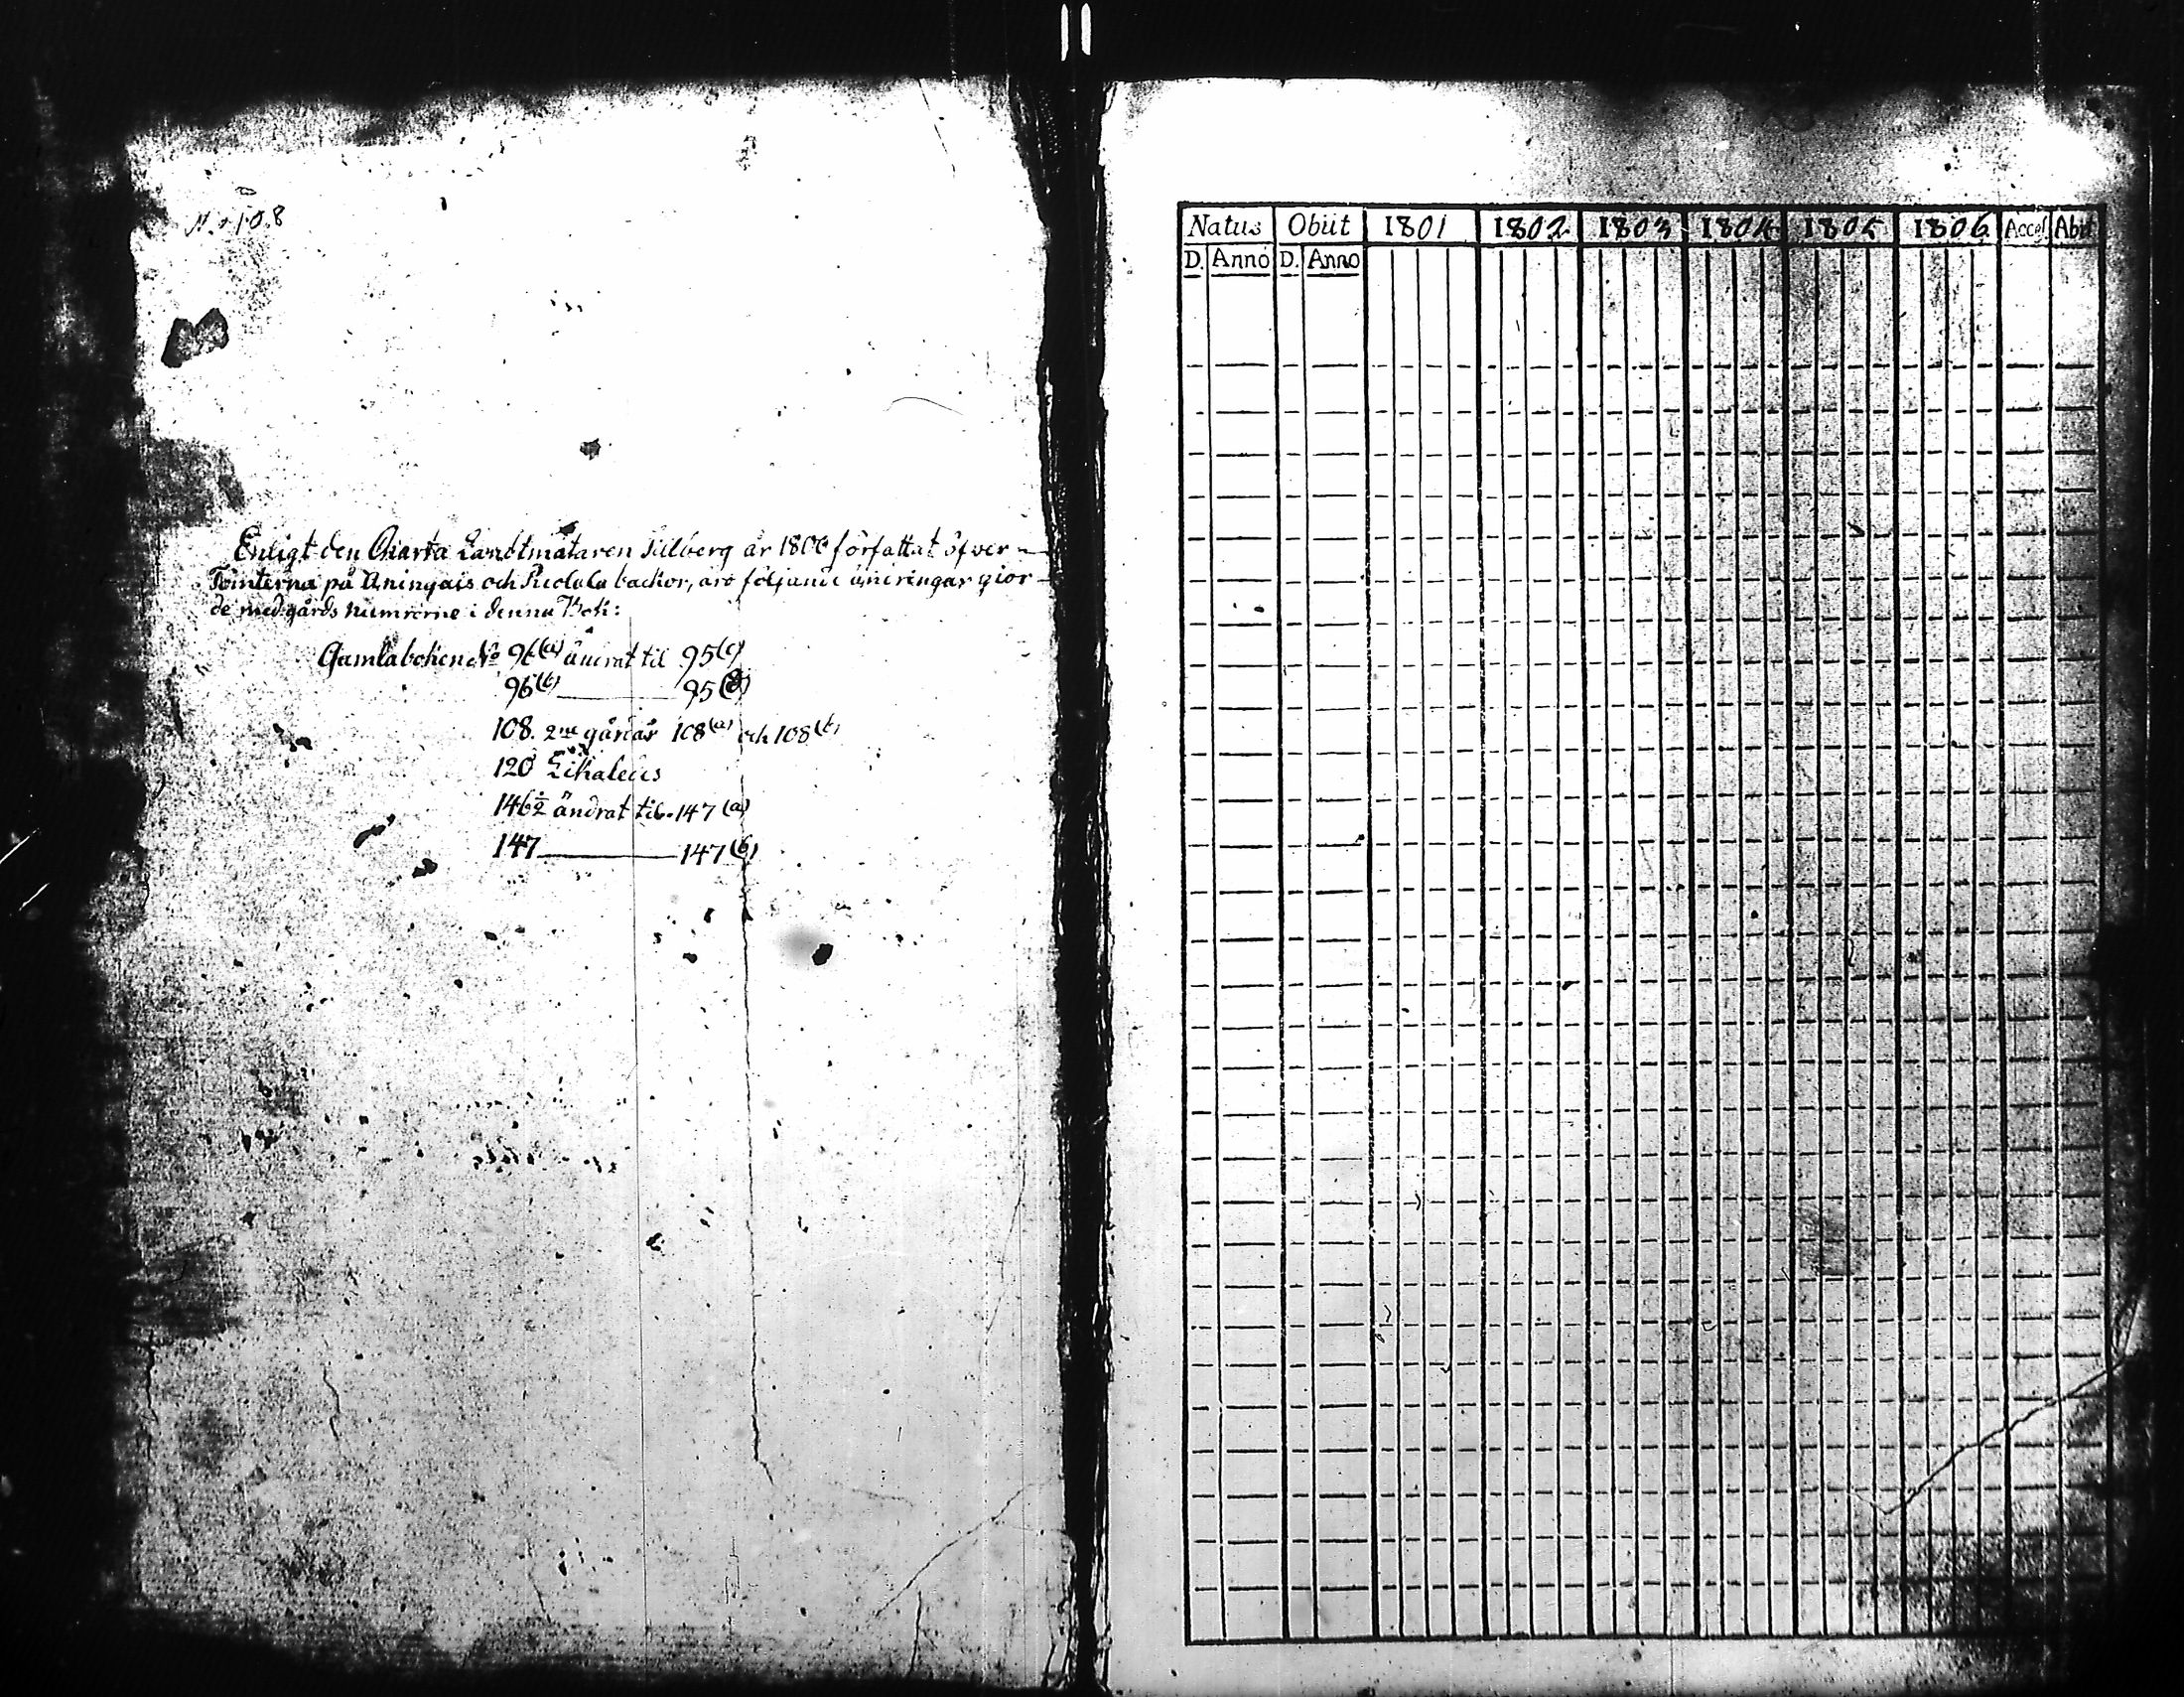 N:o 108
Enligt den Charta Landtmätaren Tillberg år 1800 författat öfver
Tomterna på Aningais och Puolala backor, äro följande ändringar gior-
de med gårds numrorne i denna Bok:
Gamla boken No 96(a) ändrat til 95(c)
96(b) 95(d)
108. 2ne gårdar 108(a) och 108(b)
120 Likaledes
146½ ändrat til 147(a)
147 147(b)
Natus Obiit 1801 1802 1803 1804 1805 1806 Acces. Abit
D. Anno D. Anno